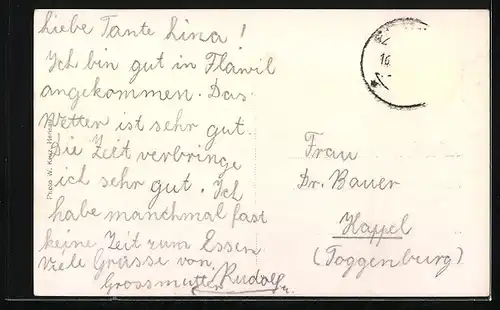 Liebe Tante Lina!
Ich bin gut in Flawil
angekommen. Das
Wetter ist sehr gut.
Die Zeit verbringe
ich sehr gut. Ich
habe manchmal fast
keine Zeit zum Essen
Viele Grüsse von
Grossmutter Rudolf u.
Frau
Dr. Bauer
Kappel
(Toggenburg)
Photo W.